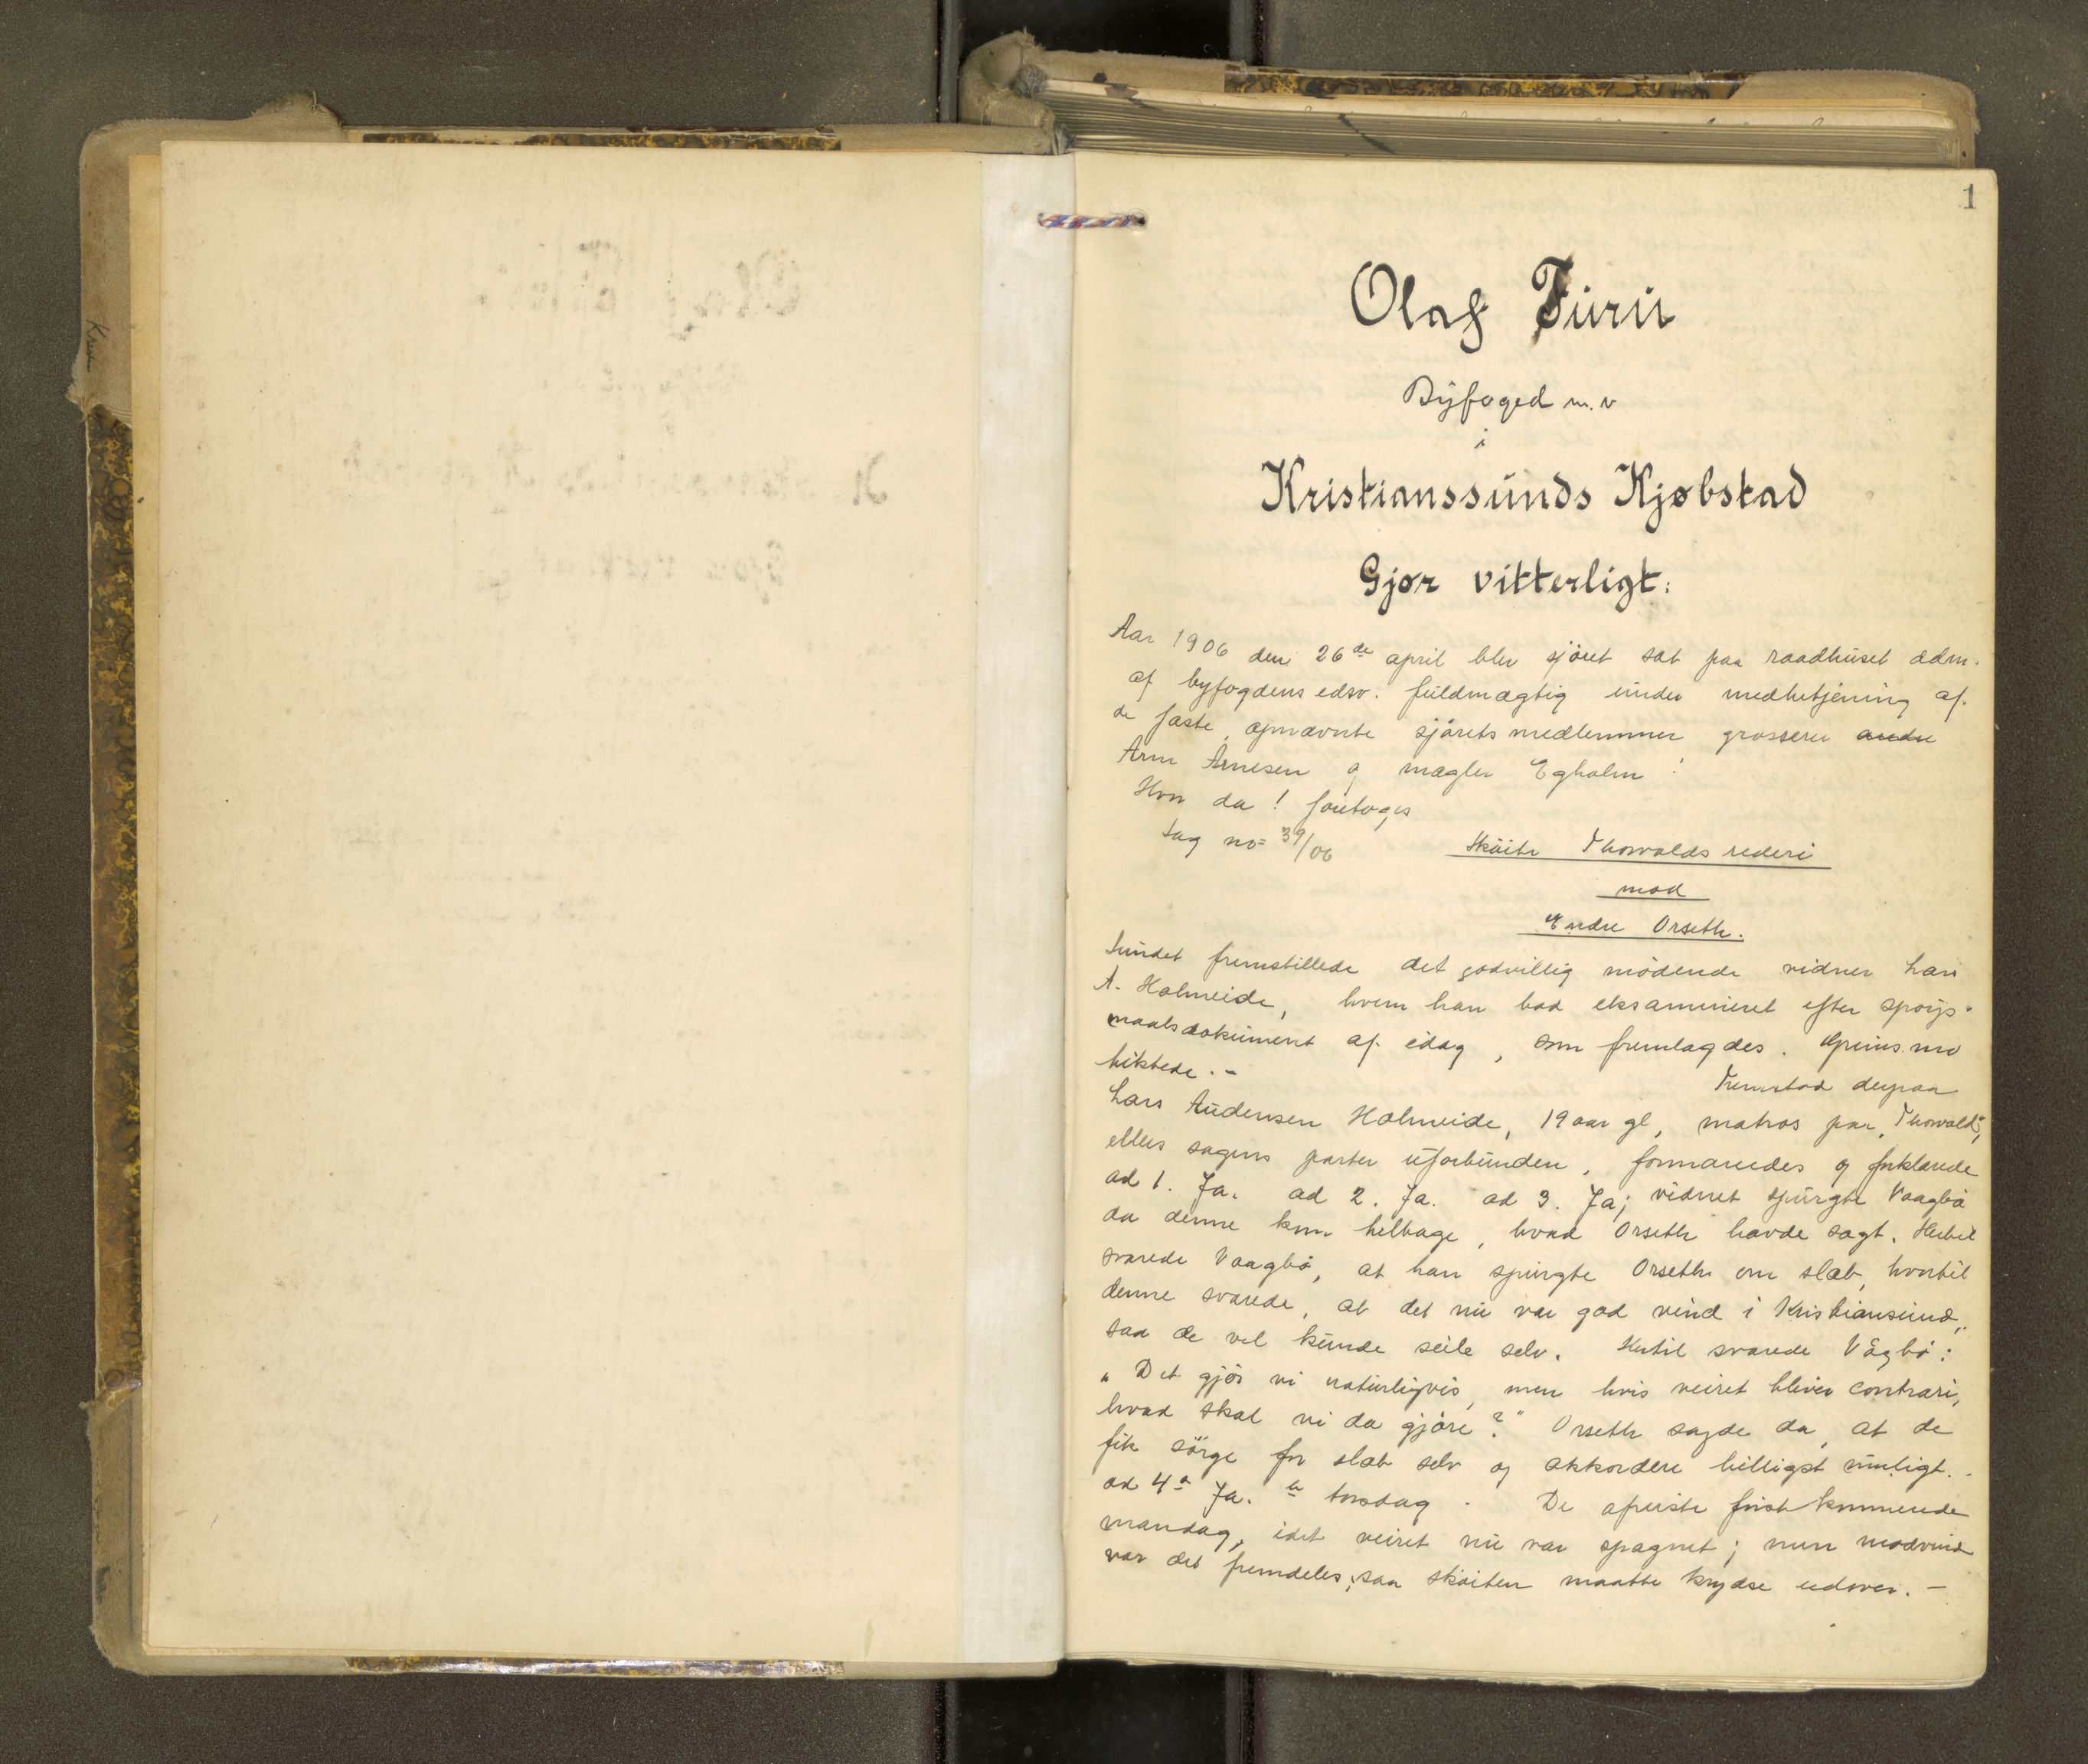 1
Olaf Furu
Byfoged m.v
i
Kristianssunds Kjøbstad
Gjør vitterligt:
Aar 1906 den 26de april blev sjöret sat paa raadhuset adm.
af byfogdens edsv. fuldmægtig under medbetjening af
de faste, opnævnte sjörets medlemmer grosserer andre
Arne Arnesen og mægler Egholm:
Hvor da! foretoges
sag no 39/06
Sköite Thorvalds rederi
mod
Endre Orseth.
Sundet fremstillede det godvillig mödende vidner Lars
A. Holmeide, hvem han bad eksamineret efter spörgs-
maalsdokument af idag, som fremlagdes. Grims mo
tilstede.-
Fremstod derpaa
Lars Andersen Holmeide, 19 aar gl, matros paa "Thorvald",
ellers sagens parter uforbunden, formanedes og forklarede
ad 1. Ja. ad 2. Ja. ad 3. Ja; vidnet spurgte Vaagbö
da denne kom tilbage, hvad Orseth havde sagt. Hertil
svarede Vaagbö, at han spurgte Orseth om slæb, hvortil
denne svarede, at det nu var god vind i Kristiansund,
saa de vel kunde seile selv. Hertil svarede Vågbö:
"Det gjör vi naturligvis, men hvis veiret bliver contrari,
hvad skal vi da gjöre?" Orseth sagde da, at de
fik sörge for slæb selv og akkordere billigst muligt.
ad 4 Ja. torsdag. De afreiste först kommende
mandag, idet veiret nu var spagnet; men modvind
var det fremdeles, saa sköiten maatte krydse udover. -
Kris